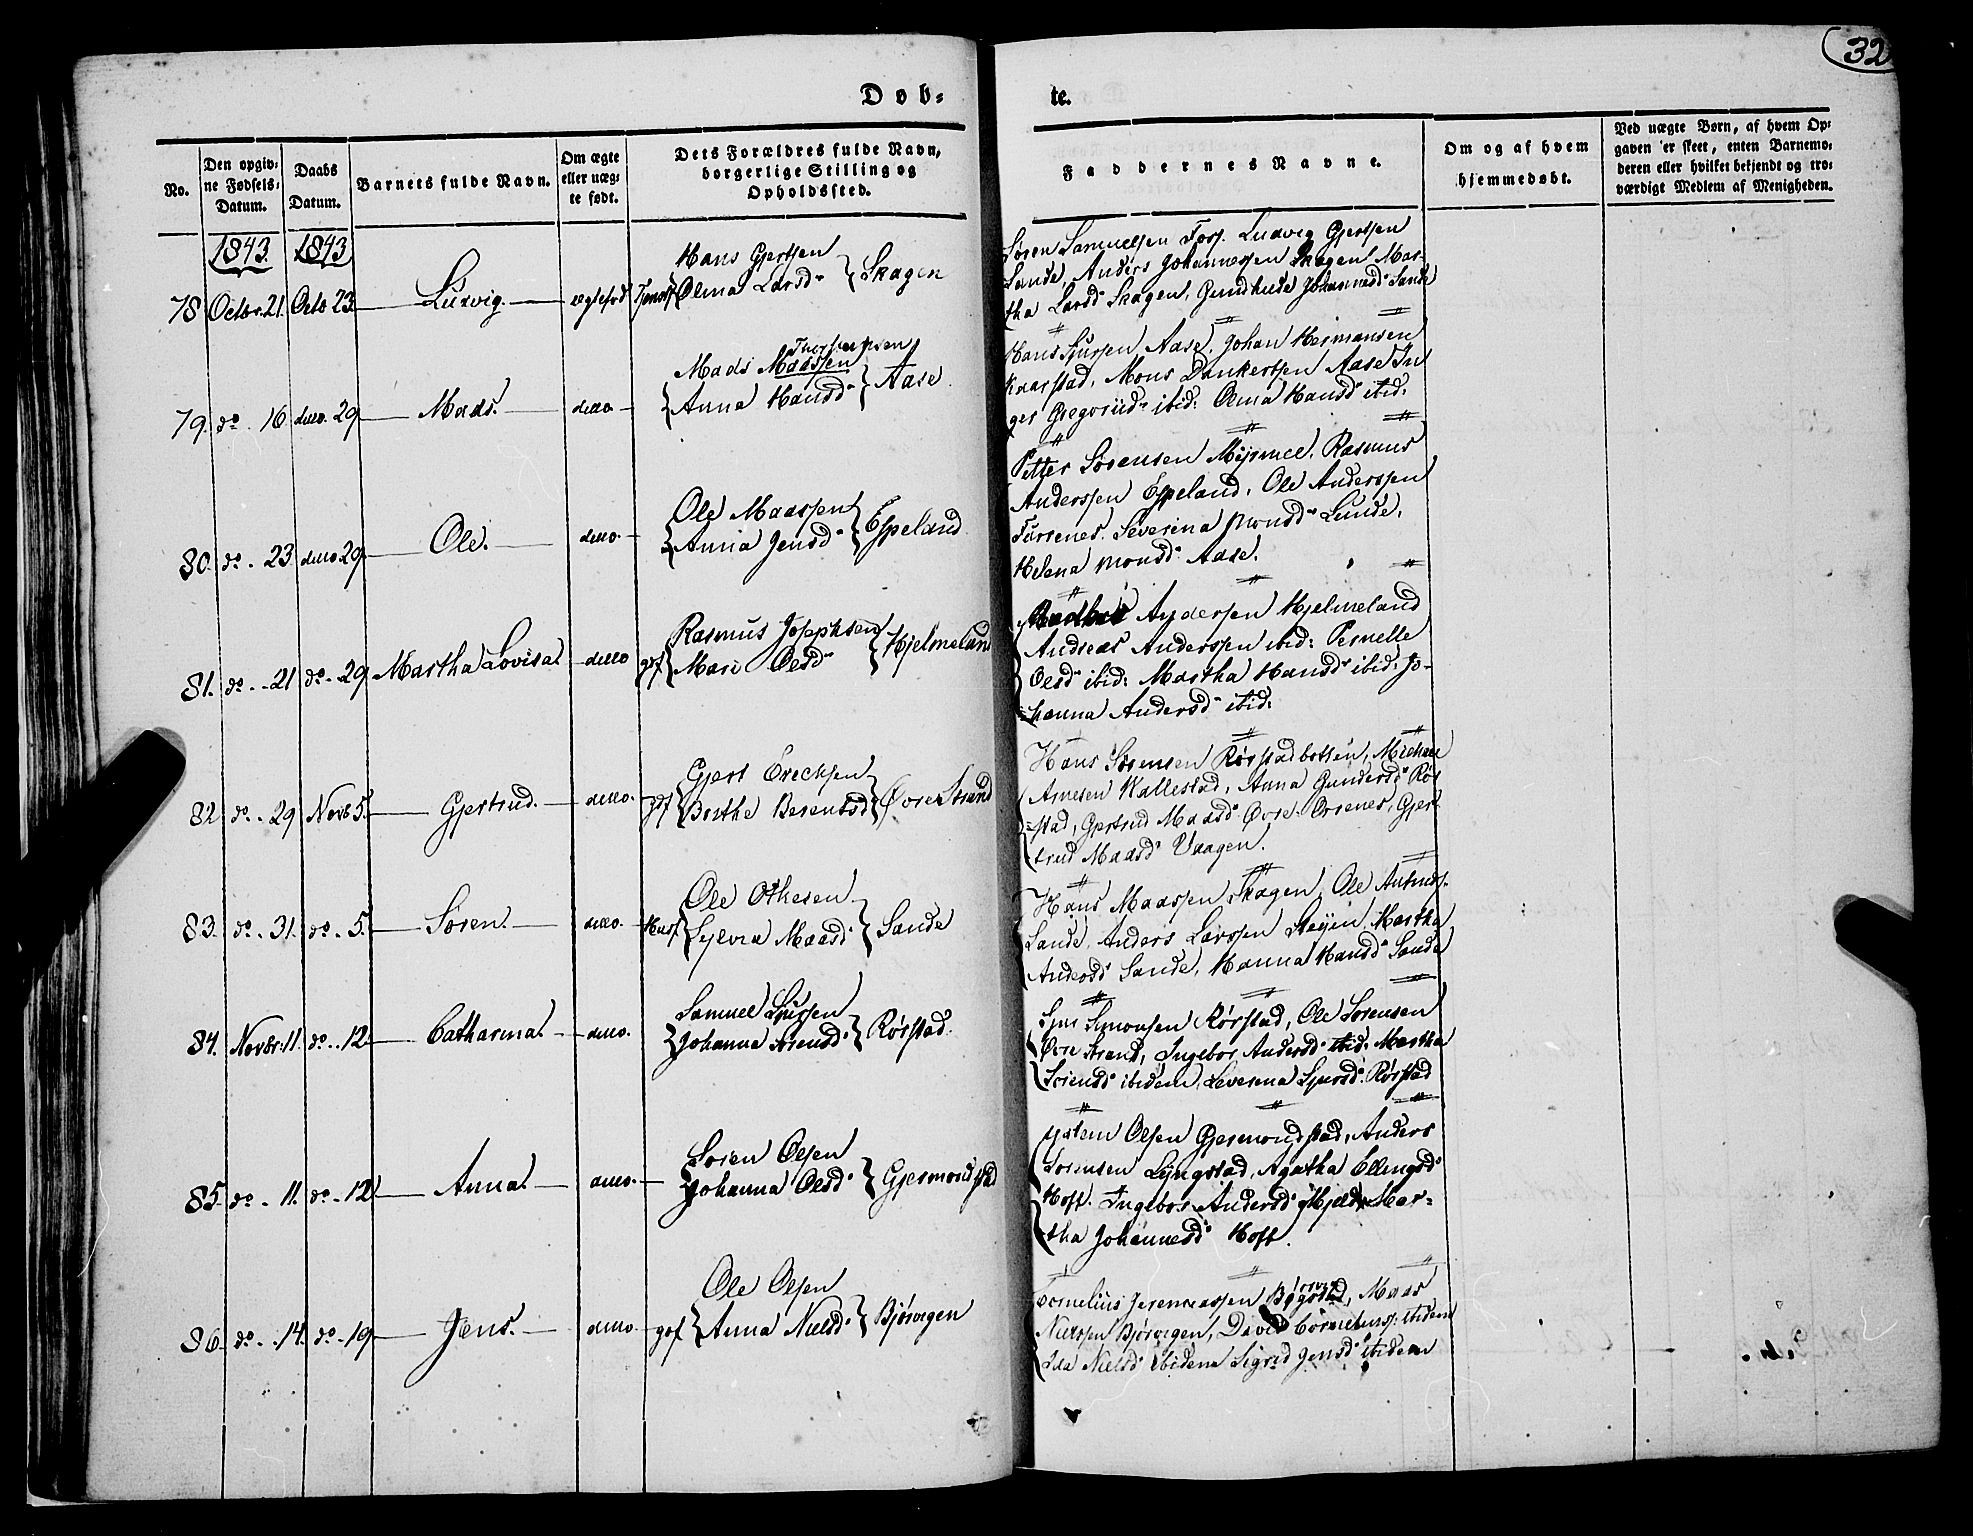 32
Døb-
te.
No.
Den opgiv-
ne Fødsels-
Datum.
Daabs
Datum.
Barnets fulde Navn.
Om ægte
eller uæg-
te født.
Dets Forældres fulde Navn,
borgerlige Stilling og
Opholdssted.
Faddernes Navne.
Om og af hvem
hjemmedøbt.
Ved uægte Børn, af hvem Op-
gaven er skeet, enten Barnemo-
deren eller hvilket bekjendt og tro-
værdigt Medlem af Menigheden.
1843. 1843
78 Octbr. 21. Octb 23. Ludvig. ægtefød
Hans Gjertsen
Olina Larsd. Skagen
Søren Samuelsen Ludvig Gjertsen
Sande, Anders Johannessen Skagen, Mar-
tha Larsd Skagen, Gundhilde Johannesd. Sande
79. do. 16 ditto. 29 Mads. ditto
Mads Maassen
Anna Hansd Aase
Hans Sjursen Aase, Johan Hermansen
Kaarstad, Mons Dankertsen Aase In
ger Gregoriid. ibid: Olina Hansd ibid:
80. do. 23 ditto 29 Ole. ditto.
Ole Maassen
Anna Jensd. Espeland
Petter Sørensen Rasmus
Anderssen Espeland, Ole Anderssen
Severina Monsd. Lunde,
Helena Monsd. Aase.
81. do. 21 do. 29 Martha Lovisa. ditto
Rasmus Josephsen
Mari Olsd. Hjelmeland
Andersen Hjelmeland
Andreas Anderssen ibid: Pernelle
Olsd. ibid: Martha Hansd. ibid: Jo-
hanna Andersd. ibid:
82 do. 29 Novb 5. Gjertrud. ditto.
Gjert Erichsen
Berthe Berentsd. Øvre Strand
Hans Sørensen Rørstadbotten, Michael
Arnesen Wallestad, Anna Gundersd. Rør
stad, Gjertrud Maasd. Øvre Gjer-
trud Maasd. Vaagen.
83. do. 31. do. 5. Søren. ditto.
Ole Othesen
Sylvia Maasd. Sande
Hans Maassen Skagen, Ole
Sande, Anders Larssen Martha
Andersd. Sande, Hanna Hansd. Sande
84. Novbr. 11. do. 12. Catharina. ditto.
Samuel Sjursen
Johanna Sørensd. Rørstad.
Sjur Simonsen Rørstad, Ole Sørensen
Øvre Strand, Ingebor Andersd. ibid: Martha
Sørensd. ibidem, Severina Sjursd. Rørstad
85. do. 11. do. 12 Anna. ditto.
Søren Olsen
Johanna Olsd. Gjermondstad
Olsen Gjermondstad, Anders
Sørensen Lyngstad, Agatha Ellingsd.
Hoft. Ingebor Andersd. Mar-
tha Johannesd. Hoft.
86. do. 14. do. 19 Jens. ditto
Ole Olsen
Anna Nielsd. Bjørvigen
Cornelius Maas
Nielssen Bjørvigen, David ibidem
Ida Nielsd. ibidem Sigrid Jensd. ibidem